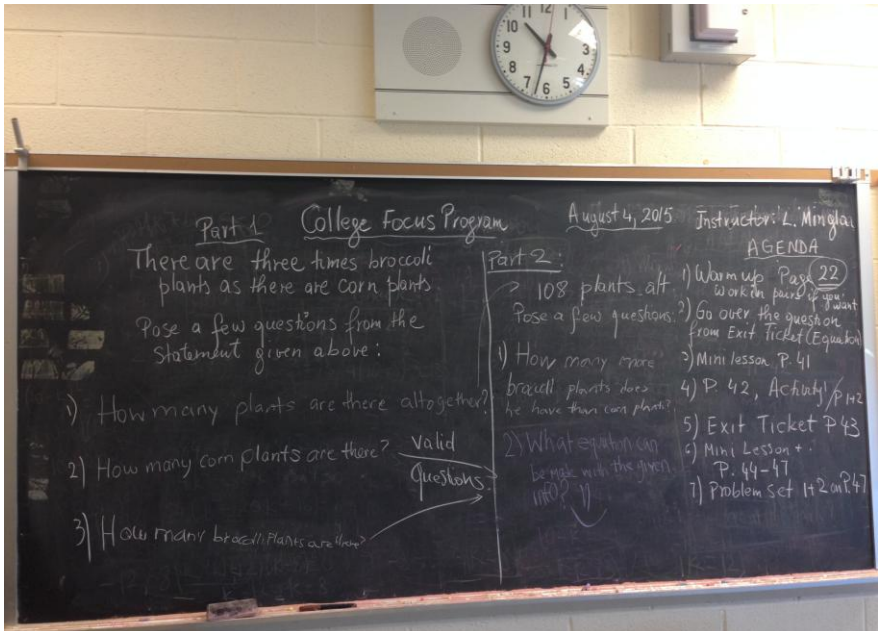 11 12 1
10
9 3
8 4
7 6 5
College Focus Program
August 4, 2015
Instructor: L. Minglai
Part 1
There are three times broccoli
plants as there are corn plants
Pose a few questions from the
statement given above:
1) How many plants are there altogether?
2) How many corn plants are there?
valid
questions.
3) How many brocoli plants are there?
Part 2:
108 plants alt
Pose a few questions:
1) How many more
brocoli plants does
he have than corn plants?
2) What equation can
be make with the given
info?
AGENDA
1) Warm up Page 22
work in pairs if you want
2) Go over the question
from Exit Ticket (Equation)
3) Mini lesson P. 41
4) P. 42, Activity 1/P 1+2
5) Exit Ticket P 43
6) Mini Lesson +
P. 44-47
7) Problem Set 1+2 on P. 47